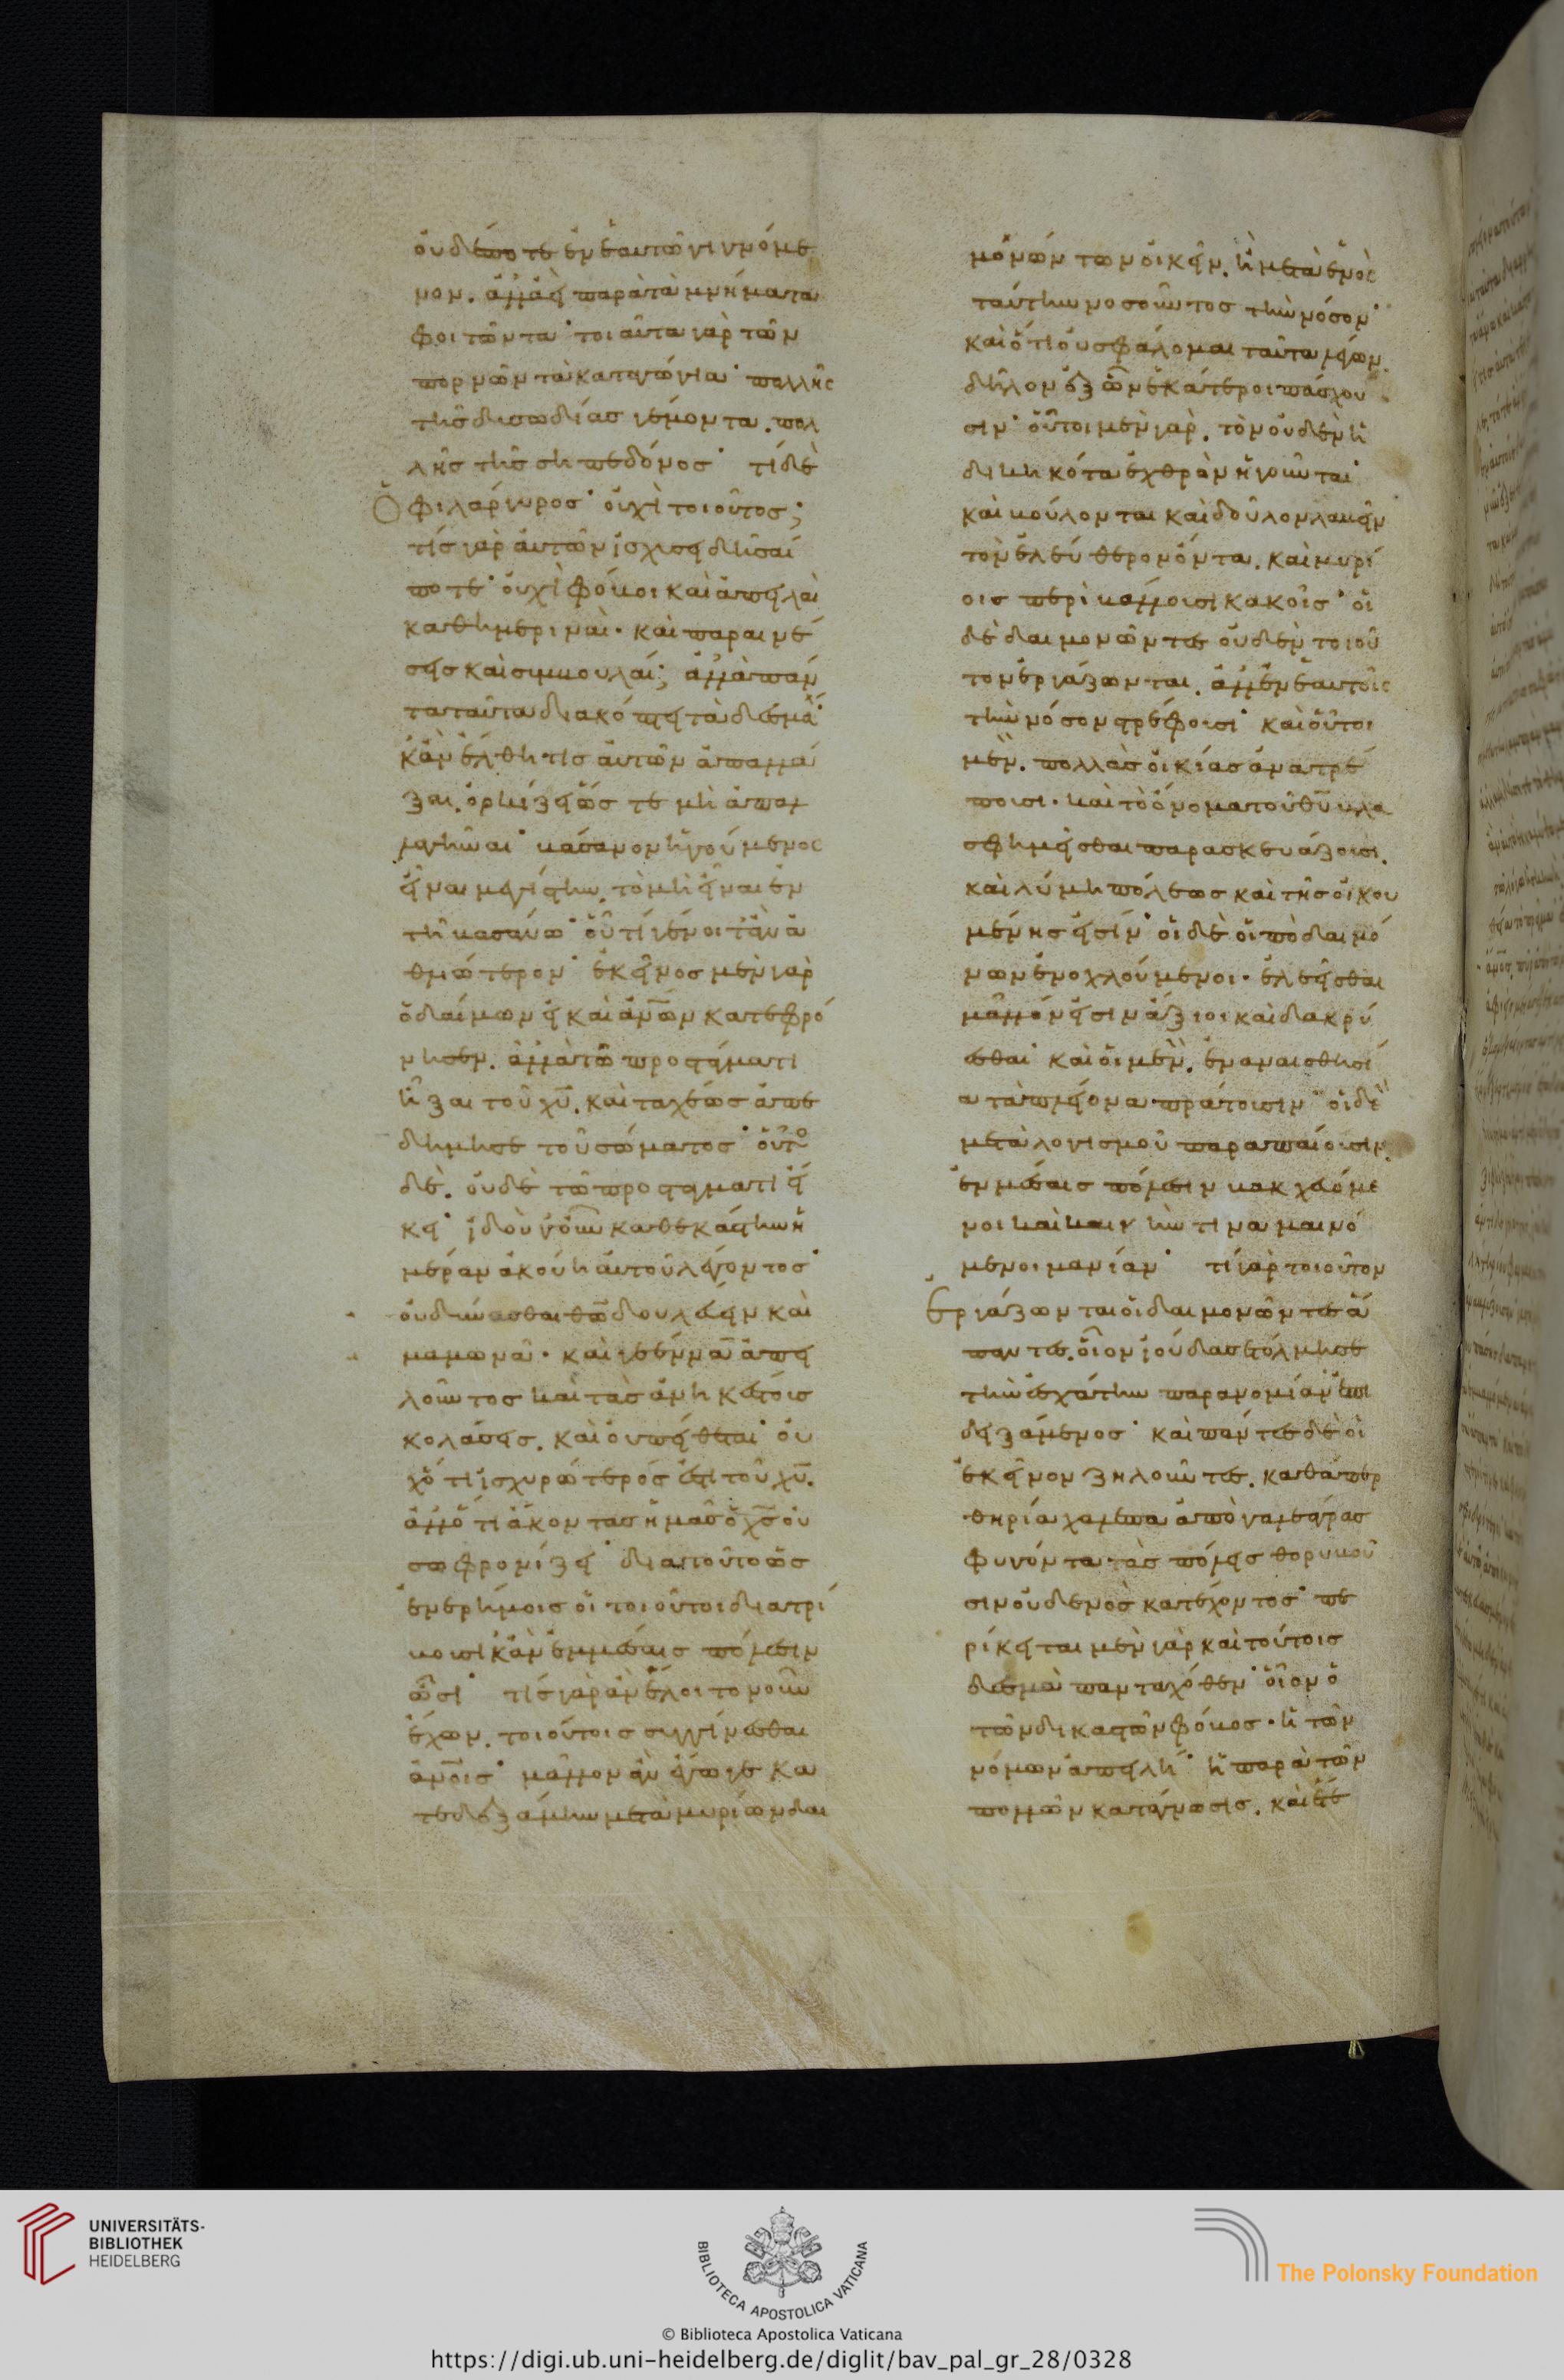 οὐδέποτε ἐν ἑαυτῶ γινόμε
νον. ἀλλ' ἀεὶ παρὰ τὰ μνήματα
φοιτῶντα· τοιαῦτα γὰρ τῶν
πορνῶν τὰ καταγώγια· πολλῆς
τῆς δυσωδίας γέμοντα. πολ
λῆς τῆς σηπεδόνος· τί δὲ
Ὁ φιλάργυρος· οὐχὶ τοιοῦτος;
τίς γὰρ αὐτὸν ἰσχύσει δῆσαί
ποτε· οὐχὶ φόβοι καὶ ἀπειλαὶ
καθημεριναὶ· καὶ παραινέ
σεις καὶ συμβουλαί; ἀλλὰ πάν
τα ταῦτα διακόπτει τὰ δεσμά·
κἂν ἔλθη τις αὐτὸν ἀπαλλά
ξαι. ὁρκίζει ὥστε μὴ ἀπαλ
λαγῆναι· βάσανον ἡγούμενος
εἶναι μεγίστην. τὸ μὴ εἶναι ἐν
τῆ βασάνω· οὗ τί γένοιτ' ἂν ἀ
θλιώτερον· ἐκεῖνος μὲν γὰρ
ὁ δαίμων εἰ καὶ ἀνῶν κατεφρό
νησεν. ἀλλὰ τῶ προστάγματι
εἶξαι τοῦ χυ. καὶ ταχέως ἀπε
δήμησε τοῦ σώματος· οὗτο
δὲ. οὐδὲ τῶ προστάγματι εἴ
κει· ἰδοὺ γοῦν καθεκάστην ἡ
μέραν ἀκούη αὐτοῦ λέγοντος·
οὐ δύνασθαι θω δουλεύειν καὶ
μαμωνᾶ· καὶ γέενναν ἀπει
λοῦντος καὶ τὰς ἀνηκέστοις
κολάσεις. καὶ οὐ πείθεται· οὐ
χ' ὅτι ἰσχυρώτερός ἐστι τοῦ χυ.
ἀλλ' ὅτι ἄκοντας ἡμᾶς ὁ χς οὐ
σωφρονίζει· διατοῦτο ὡς
ἐν ἐρήμοις οἱ τοιοῦτοι διατρί
βουσι κἂν ἐν μέσαις πόλεσιν
ὦσι· τίς γὰρ ἂν ἕλοιτο νοῦν
ἔχων. τοιούτοις συγγίνεσθαι
ἀνοις· μᾶλλον ἂν ἔγωγε κα
τεδεξάμην μετὰ μυρίων δαι
μονώντων οἰκεῖν. ἢ μετὰ ἑνὸς
ταύτην νοσοῦντος τὴν νόσον·
καὶ ὅτι οὐ σφάλομαι ταῦτα λέγων.
δῆλον ἐξ ὧν ἑκάτεροι πάσχου
σιν· οὗτοι μὲν γὰρ. τὸν οὐδὲν ἠ
δικηκότα ἐχθρὸν ἡγοῦνται·
καὶ βούλονται καὶ δοῦλον λαβεῖν
τὸν ἐλεύθερον ὄντα. καὶ μυρί
οις περιβάλλουσι κακοῖς· οἱ
δὲ δαιμονῶντες οὐδὲν τοιοῦ
τον ἐργάζονται. ἀλλ' ἐν ἑαυτοῖς
τὴν νόσον στρέφουσι· καὶ οὗτοι
μὲν. πολλὰς οἰκίας ἀνατρέ
πουσι· καὶ τὸ ὄνομα τοῦ θυ βλα
σφημεῖσθαι παρασκευάζουσι.
καὶ λύμη πόλεως καὶ τῆς οἰκου
μένης εἰσίν· οἱ δὲ οἱ ὑπὸ δαιμό
νων ἐνοχλούμενοι· ἐλεεῖσθαι
μᾶλλόν εἰσιν ἄξιοι καὶ δακρύ
εσθαι· καὶ οἱ μὲν. ἐν ἀναισθησί
α τὰ πλείονα πράττουσιν· οἱ δὲ
μετὰ λογισμοῦ παραπαίουσιν.
ἐν μέσαις πόλεσιν βακχευόμε
νοι καὶ καινήν τινα μαινό
μενοι μανίαν· τί γὰρ τοιοῦτον
ἐργάζονται οἱ δαιμονῶντες ἅ
παντες. οἷον ἰούδας ἐτόλμησε
τὴν ἐσχάτην παρανομίαν ἐπι
δειξάμενος· καὶ πάντες δὲ οἱ
ἐκεῖνον ζηλοῦντες. καθάπερ
θηρία χαλεπὰ ἀπὸ γαλεάγρας
φυγόντα· τὰς πόλεις θορυβοῦ
σιν οὐδενὸς κατέχοντος· πε
ρίκειται μὲν γὰρ καὶ τούτοις
δεσμὰ πανταχόθεν· οἷον ὁ
τῶν δικαστῶν φόβος· ἡ τῶν
νόμων ἀπειλή· ἡ παρὰ τῶν
πολλῶν κατάγνωσις. καὶ ἕτε
UNIVERSITÄTS-
BIBLIOTHEK
HEIDELBERG
BIBLIOTECA APOSTOLICA VATICANA
The Polonsky Foundation
© Biblioteca Apostolica Vaticana
https://digi.ub.uni-heidelberg.de/diglit/bav_pal_gr_28/0328